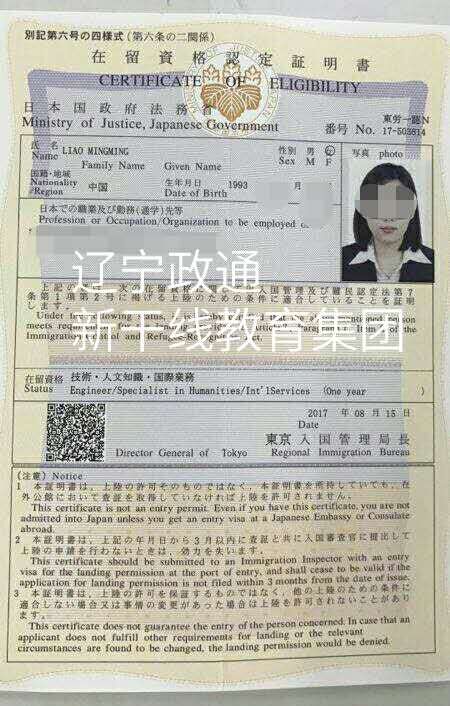 別記第六号の四様式(第六条の二関係)
在留資格認定証明書
CERTIFICATE OF ELIGIBILITY
日本国政府法務省
Ministry of Justice, Japanese Government
東労一認N
番号 No. 17-503614
氏名
Name LIAO MINGMING
Family Name Given Name
性別 男 女
Sex M F
写真 photo
国籍・地域
Nationality
/Region
中国
生年月日 1993 月
Date of Birth
日本での職業及び勤務(通学)先等
Profession or Occupation/Organization to be employed
辽宁政通
新干线教育集团
上記の
入国管理及び難民認定法第7
条第1項第2号に掲げる上陸のための条件に適合していることを証明
します。
在留資格 技術・人文知識・国際業務
Status Engineer/Specialist in Humanities/Int'lServices (One year )
2017 年 08 月 15 日
Date
東京入国管理局長
Director General of Tokyo Regional Immigration Bureau
(注意) Notice
1 本証明書は、上陸の許可そのものではなく、本証明書を所持していても、在
外公館において査証を取得していなければ上陸を許可されません。
This certificate is not an entry permit. Even if you have this certificate, you are not
admitted into Japan unless you get an entry visa at a Japanese Embassy or Consulate
abroad.
2 本証明書は、上記の年月日から3月以内に査証と共に入国審査官に提出して
上陸の申請を行わないときは、効力を失います。
This certificate should be submitted to an Immigration Inspector with an entry
visa for the landing permission at the port of entry, and shall cease to be valid if the
application for landing permission is not filed within 3 months from the date of issue.
3 本証明書は、上陸の許可を保証するものではなく、他の上陸のための条件に
適合しない場合又は事情の変更があった場合は上陸を許可されないことがあり
ます。
This certificate does not guarantee the entry of the person concerned. In case that an
applicant does not fulfill other requirements for landing or the relevant
circumstances are found to be changed, the landing permission would be denied.